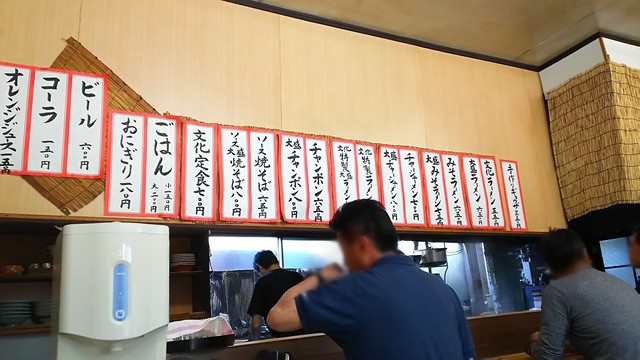 手作りギョウザ
文化ラーメン 五五〇円
大盛ラーメン 六五〇円
みそラーメン 六五〇円
大盛みそラーメン 七五〇円
チャーシューメン 七〇〇円
大盛チャーシューメン 八〇〇円
文化特製ラーメン
文化特製大盛ラーメン
チャンポン 六五〇円
大盛チャンポン 八〇〇円
ソース焼そば 六五〇円
ソース大盛焼そば 八〇〇円
文化定食 七〇〇円
ごはん 小 一五〇円
大 二〇〇円
おにぎり 一八〇円
ビール 六〇〇円
コーラ 一五〇円
オレンジジュース 一五〇円